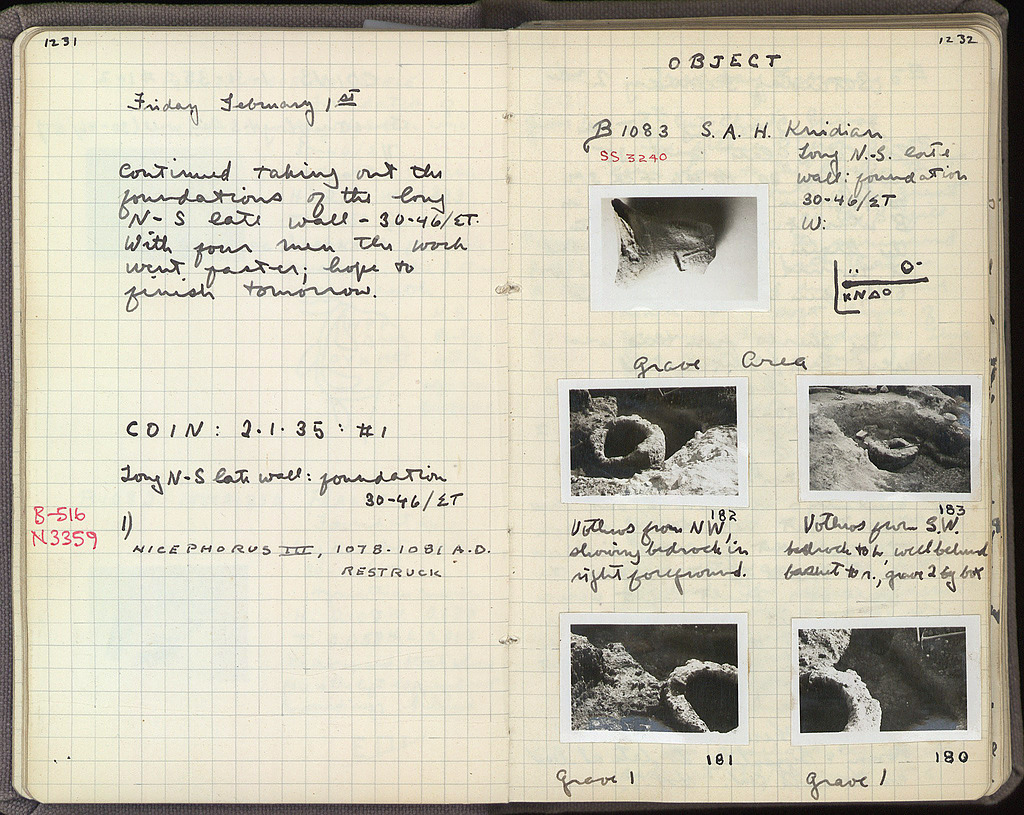 1231
Friday February 1st
Continued taking out the
foundations of the long
N-S late wall - 30-46/ΣΤ.
With four men the work
went faster; hope to
finish tomorrow.
COIN: 2.1.35: #1
Long N-S late wall: foundation
30-46/ΣΤ
B-516
N3359
1)
NICEPHORUS III, 1078-1081 A.D.
RESTRUCK
1232
OBJECT
B 1083 S.A.H. Knidian
SS 3240
Long N.-S. late
wall: foundation
30-46/ΣΤ
W:
ΚΝΔΟ
Grave Area
182
Vothros from NW,
showing bedrock in
right foreground.
183
Vothros from S.W.
bedrock to l., well behind
basket to r., grave 2 by box
181
Grave 1
180
Grave 1